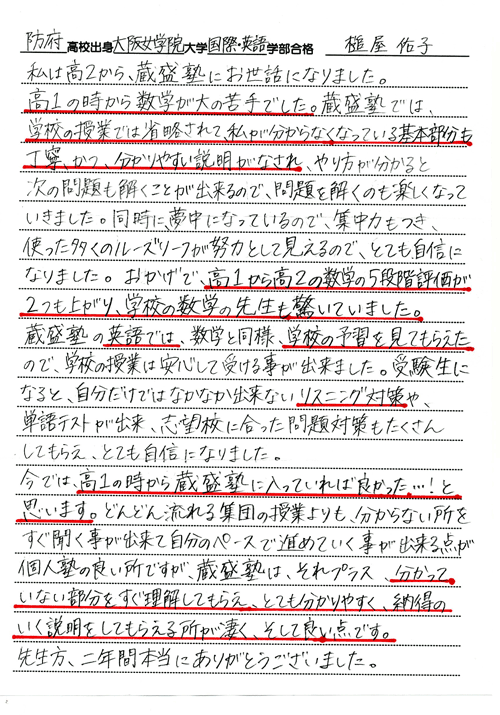 防府高校出身大阪女学院大学国際・英語学部合格 槌屋 佑子
私は高2から、蔵盛塾にお世話になりました。
高1の時から数学が大の苦手でした。蔵盛塾では、
学校の授業では省略されて、私が分からなくなっている基本部分も
丁寧、かつ、分かりやすい説明がなされ、やり方が分かると
次の問題も解くことが出来るので、問題を解くのも楽しくなって
いきました。同時に、夢中になっているので、集中力もつき、
使った多くのルーズリーフが努力として見えるので、とても自信に
なりました。おかげで、高1から高2の数学の5段階評価が
2つも上がり、学校の数学の先生も驚いていました。
蔵盛塾の英語では、数学と同様、学校の予習を見てもらえた
ので、学校の授業は安心して受ける事が出来ました。受験生に
なると、自分だけではなかなか出来ないリスニング対策や、
単語テストが出来、志望校に合った問題対策もたくさん
してもらえ、とても自信になりました。
今では、高1の時から蔵盛塾に入っていれば良かった…!と
思います。どんどん流れる集団の授業よりも、分からない所を
すぐ聞く事が出来て自分のペースで進めていく事が出来る点が
個人塾の良い所ですが、蔵盛塾は、それプラス、分かって
いない部分をすぐ理解してもらえ、とても分かりやすく、納得の
いく説明をしてもらえる所が凄く、そして良い点です。
先生方、二年間本当にありがとうございました。